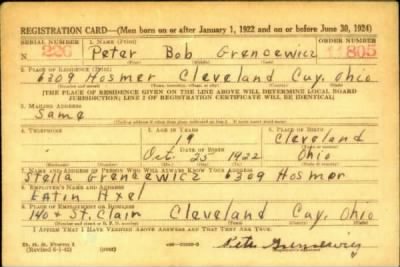 REGISTRATION CARD—(Men born on or after January 1, 1922 and on or before June 30, 1924)
SERIAL NUMBER 1. NAME (Print) ORDER NUMBER
N 220 Peter Bob Grencewicz 11805
2. PLACE OF RESIDENCE (Print)
6309 Hosmer Cleveland Cuy. Ohio
(THE PLACE OF RESIDENCE GIVEN ON THE LINE ABOVE WILL DETERMINE LOCAL BOARD
JURISDICTION; LINE 2 OF REGISTRATION CERTIFICATE WILL BE IDENTICAL)
3. MAILING ADDRESS
Same
4. TELEPHONE 5. AGE IN YEARS 6. PLACE OF BIRTH
19 Cleveland
DATE OF BIRTH
Oct. 25 1922 Ohio
7. NAME AND ADDRESS OF PERSON WHO WILL ALWAYS KNOW YOUR ADDRESS
Stella Grencewicz 6309 Hosmer
8. EMPLOYER'S NAME AND ADDRESS
Eatin Axel
9. PLACE OF EMPLOYMENT OR BUSINESS
140 & St. Clair Cleveland Cuy. Ohio
I AFFIRM THAT I HAVE VERIFIED ABOVE ANSWERS AND THAT THEY ARE TRUE.
D. S. S. Form 1
(Revised 6-1-42) (over) Pete Grencewicz